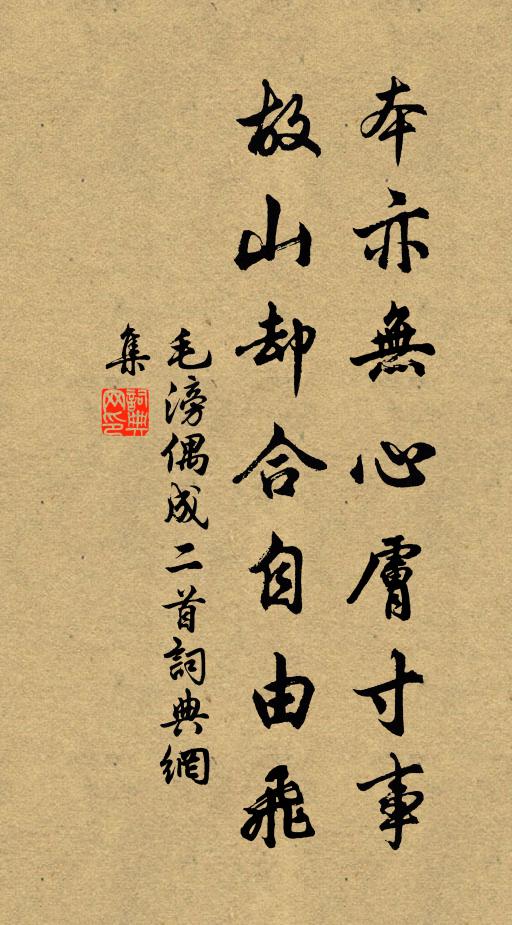 本亦無心膚寸事
故山却合自由飛
毛滂偶成二首詞典網
集
詞典網印